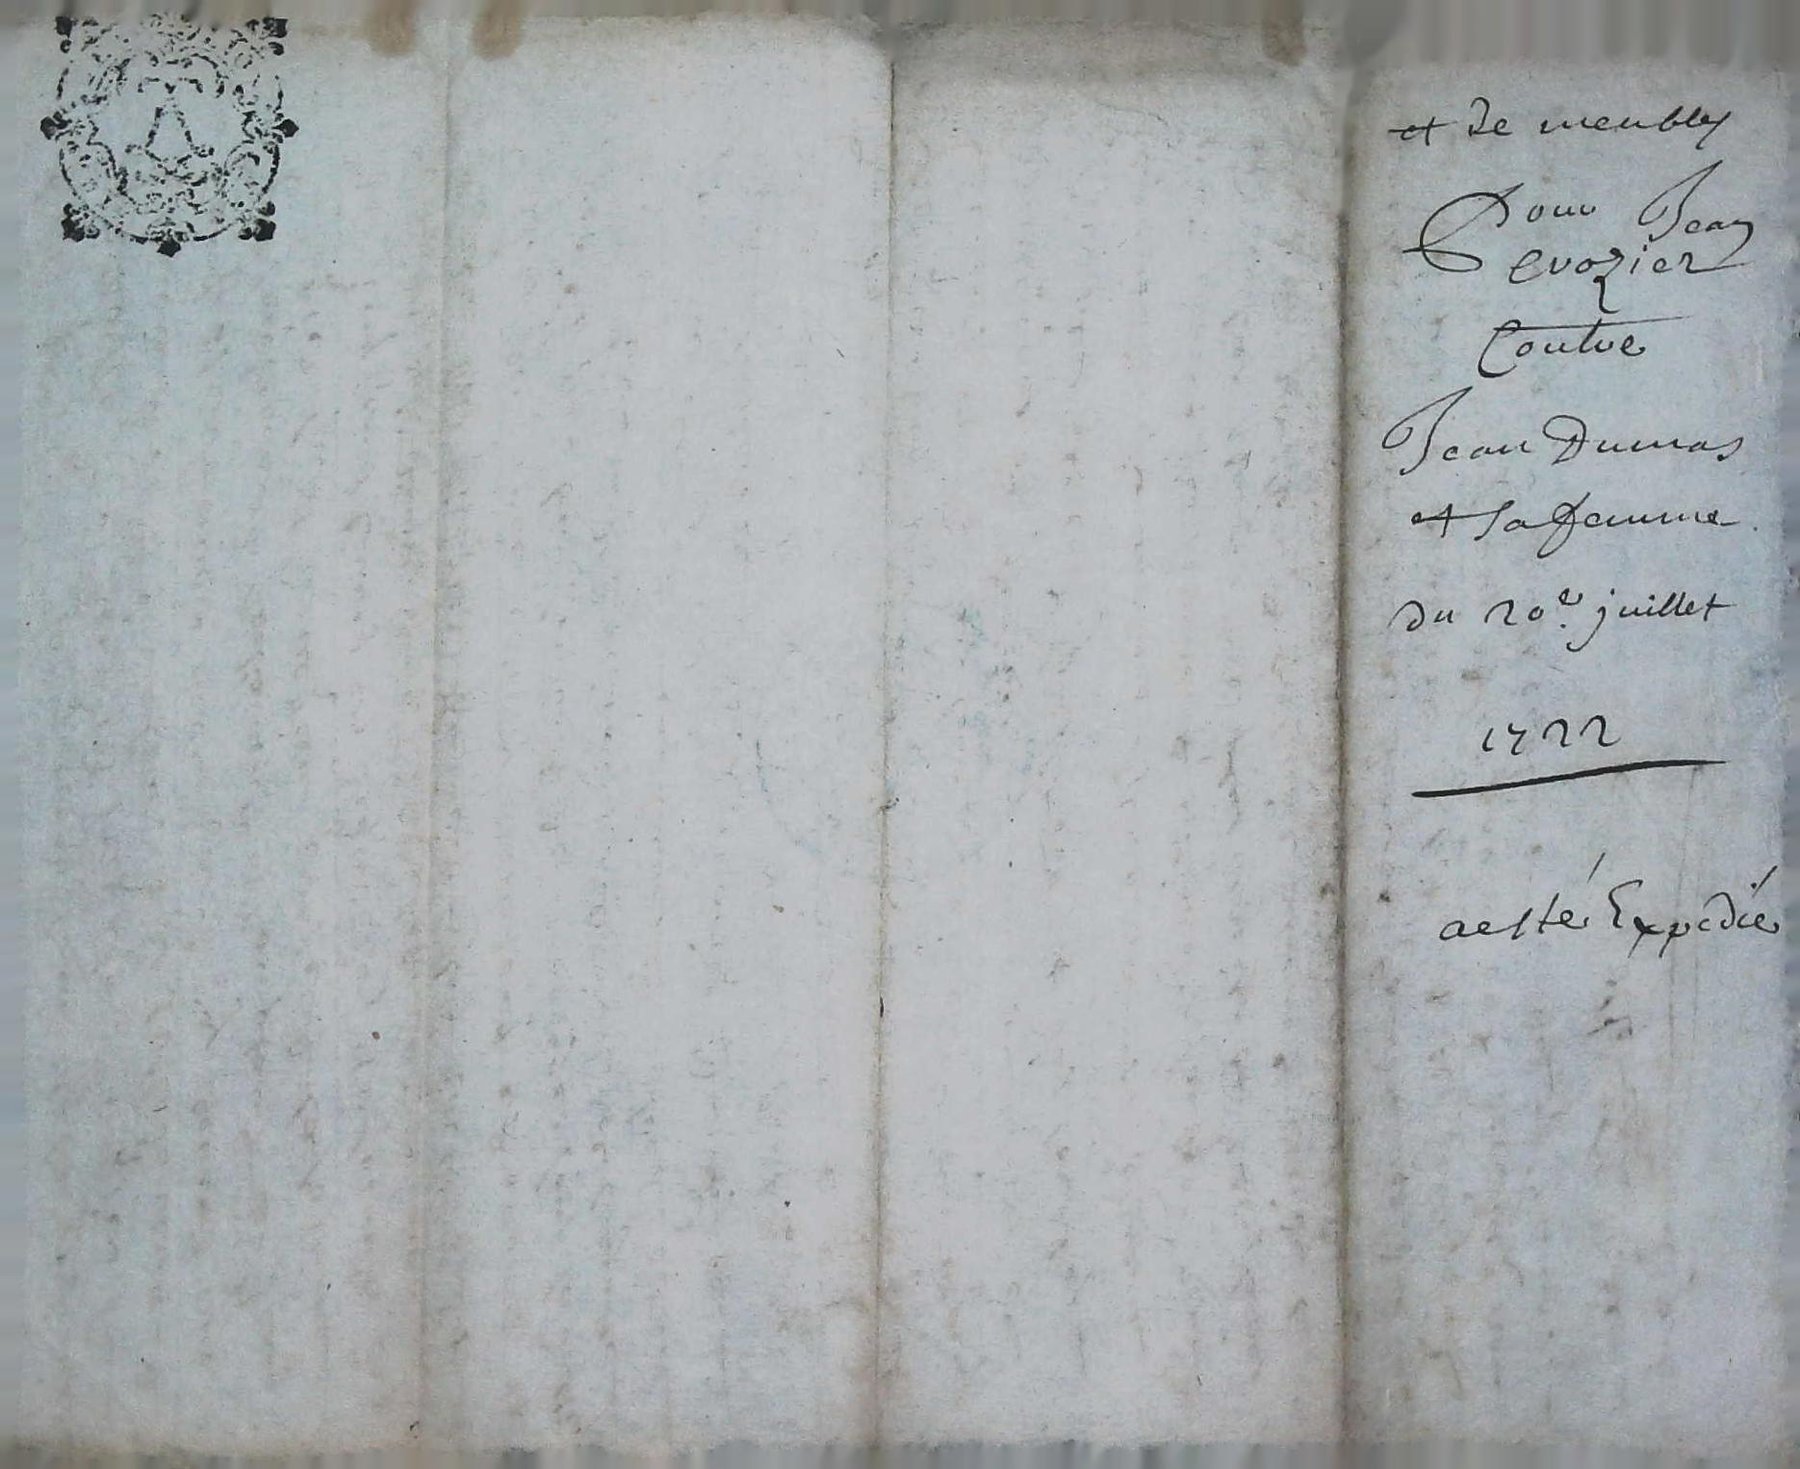 et de meubles
Pour Jean
Crozier
Contre
Jean Dumas
et sa femme
du 20e juillet
1722
a esté Expedié